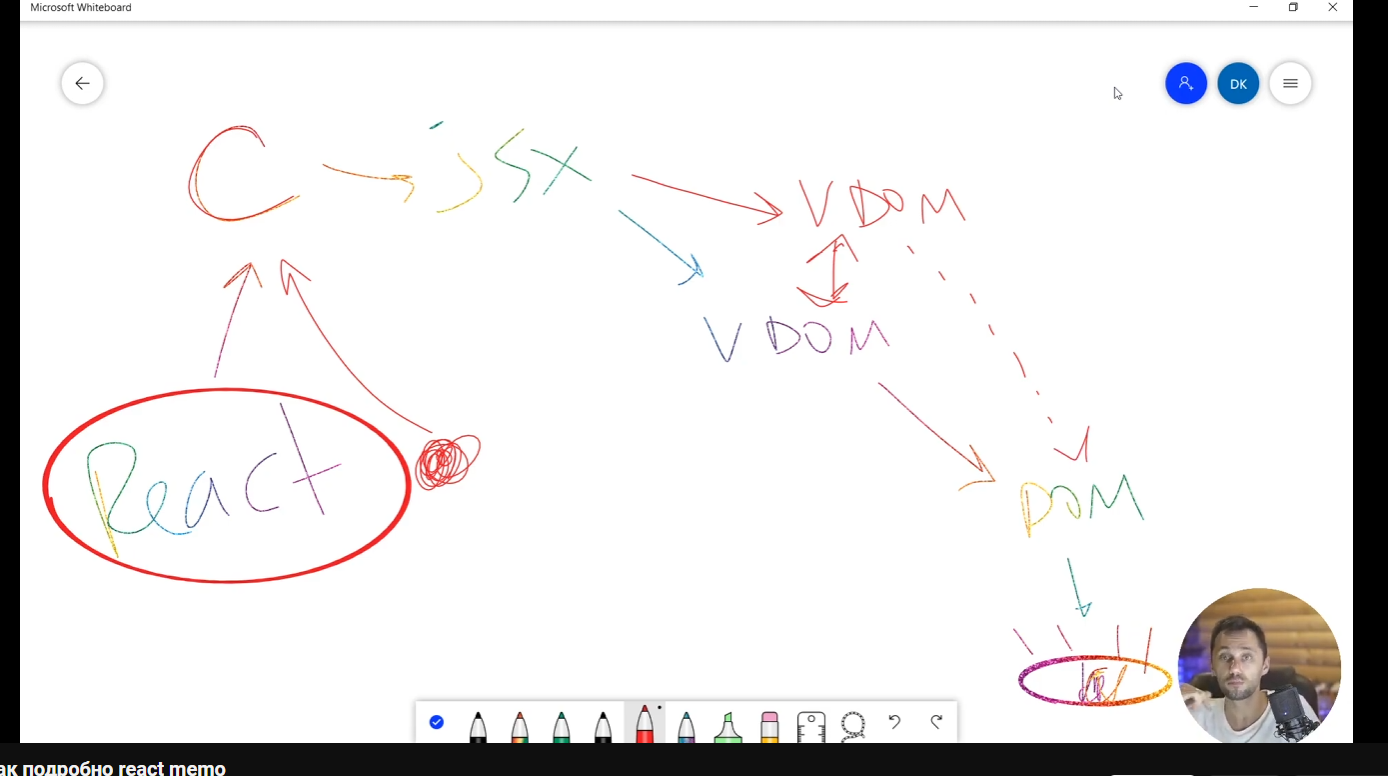 Microsoft Whiteboard
DK
C jsx
VDOM
VDOM
React
DOM
ак подробно react memo